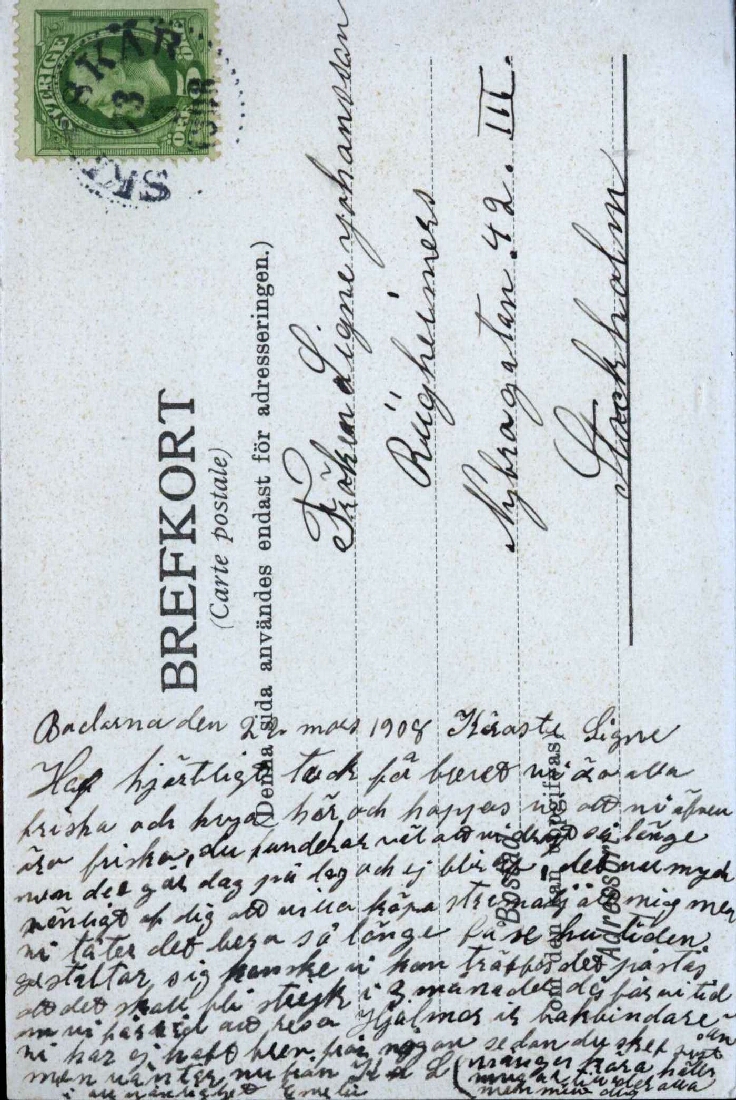 SVERIGE
5
SKÄR
13
1908
BREFKORT
(Carte postale)
(Denna sida användes endast för adresseringen.)
Fröken Signe Johansson
Rügheimers
Nybrogatan 42. III.
Stockholm
Bostad
Adressen
om den kan uppgifvas
Badarna den 22 mars 1908 Käraste Signe
Haf hjärtligt tack för brevet vi äro alla
friska och krya här och hoppas nu att ni äfven
äro friska, du undrar väl att vi dröjt så länge
men det går dag på dag och ej blir det, det var mycket
vänligt af dig att villa köpa åt mig men
vi låter det bero så länge få se hur tiden
gestaltar sig kanske vi kan träffas det påstås
att det skall bli strejk i 3 månader då får vi tid
om vi får tid att resa Hjalmar är bokbindare
vi har ej haft brev från någon sedan du skref
men väntar nu från
många kära hälsningar
alla